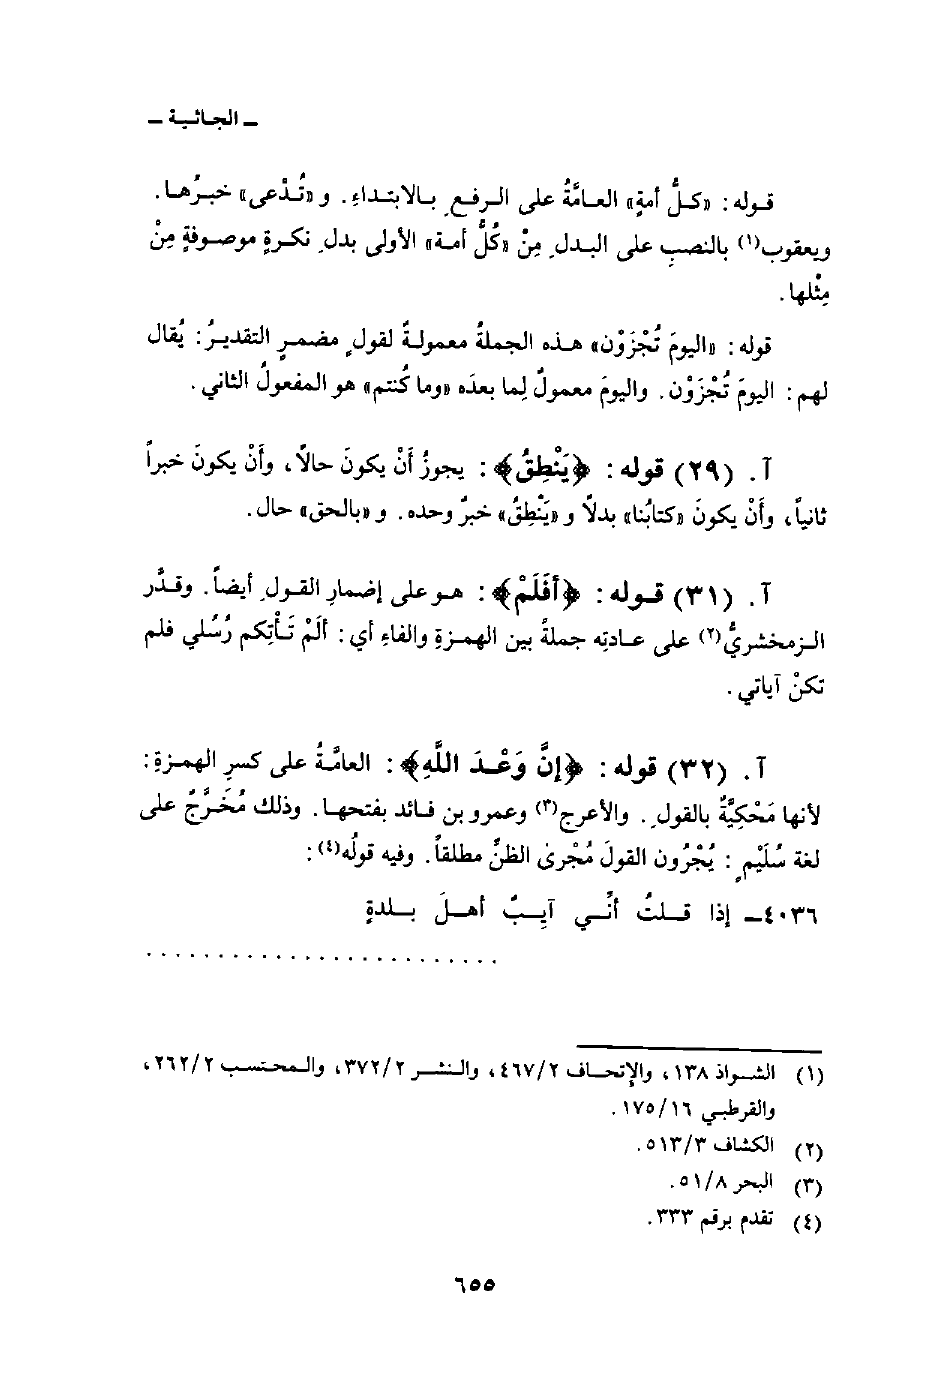 ـ الجاثية ـ
قوله: «كلُّ أمةٍ» العامَّةُ على الرفعِ بالابتداءِ. و «تُدْعى» خبرُها.
ويعقوب(١) بالنصبِ على البدلِ مِنْ «كُلَّ أمة» الأولى بدلِ نكرةٍ موصوفةٍ مِنْ
مِثْلها.
قوله: «اليومَ تُجْزَوْن» هذه الجملةُ معمولةٌ لقولٍ مضمرٍ التقديرُ: يُقال
لهم: اليومَ تُجْزَوْن. واليومَ معمولٌ لِما بعدَه «وما كُنتم» هو المفعولُ الثاني.
آ. (٢٩) قوله: ﴿يَنْطِقُ﴾: يجوزُ أَنْ يكونَ حالاً، وأَنْ يكونَ خبراً
ثانياً، وأَنْ يكونَ «كتابُنا» بدلاً و «يَنْطِقُ» خبرٌ وحده. و «بالحق» حال.
آ. (٣١) قوله: ﴿أَفَلَمْ﴾: هو على إضمارِ القولِ أيضاً. وقدَّر
الزمخشريُّ(٢) على عادتِه جملةً بين الهمزةِ والفاءِ أي: ألَمْ تَأْتِكم رُسُلي فلم
تكنْ آياتي.
آ. (٣٢) قوله: ﴿إِنَّ وَعْدَ اللَّهِ﴾: العامَّةُ على كسرِ الهمزةِ:
لأنها مَحْكِيَّةٌ بالقولِ. والأعرج(٣) وعمرو بن فائد بفتحها. وذلك مُخَرَّجٌ على
لغة سُلَيْمٍ: يُجْرُون القولَ مُجْرىٰ الظنِّ مطلقاً. وفيه قولُه(٤):
٤٠٣٦ـ إذا قلتُ أنِّي آيِبٌ أهلَ بلدةٍ
. . . . . . . . . . . . . . . . . . . . . . . . .
(١) الشواذ ١٣٨، والإتحاف ٤٦٧/٢، والنشر ٣٧٢/٢، والمحتسب ٢٦٢/٢،
والقرطبي ١٧٥/١٦.
(٢) الكشاف ٥١٣/٣.
(٣) البحر ٥١/٨.
(٤) تقدم برقم ٣٣٣.
٦٥٥